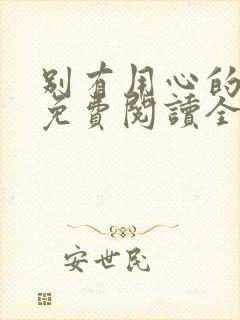 别有用心的
免費閱讀全
安世民